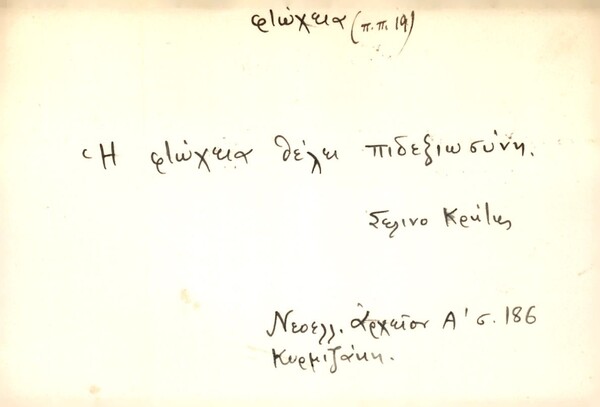 φτώχεια (π.π. 19)
Ἡ φτώχεια θέλει πιδεξιωσύνη.
Σελινο Κρήτης
Νεοελλ. Ἀρχεῖον Α' σ. 186
Κυρμιζάκη.